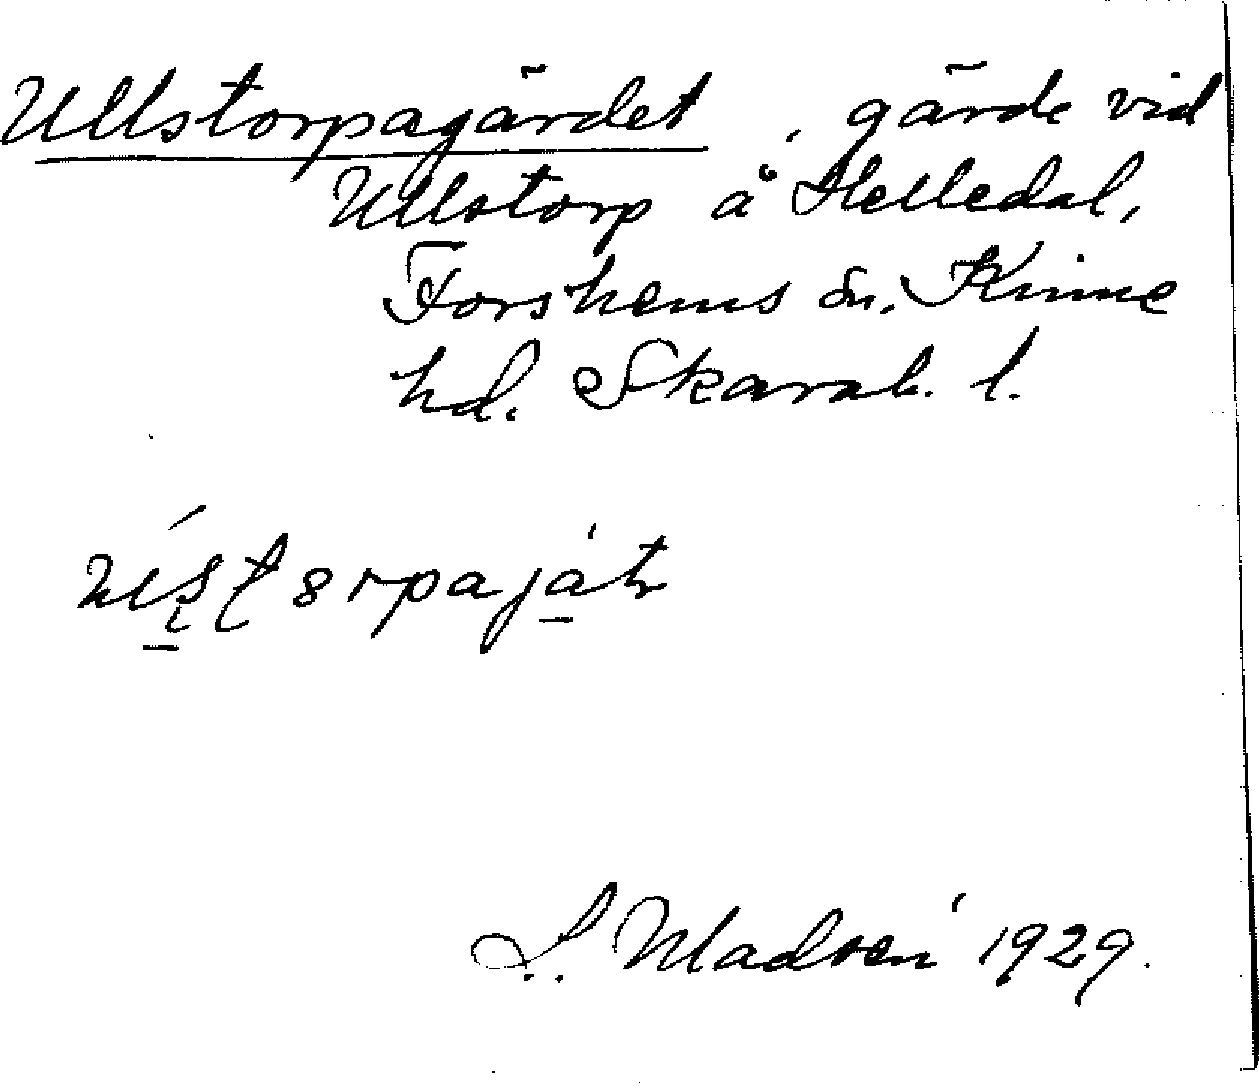 Ullstorpagärdet, gärde vid
Ullstorp å Helledal,
Forshems sn, Kinne
hd. Skarab. l.
S. Madsén 1929.